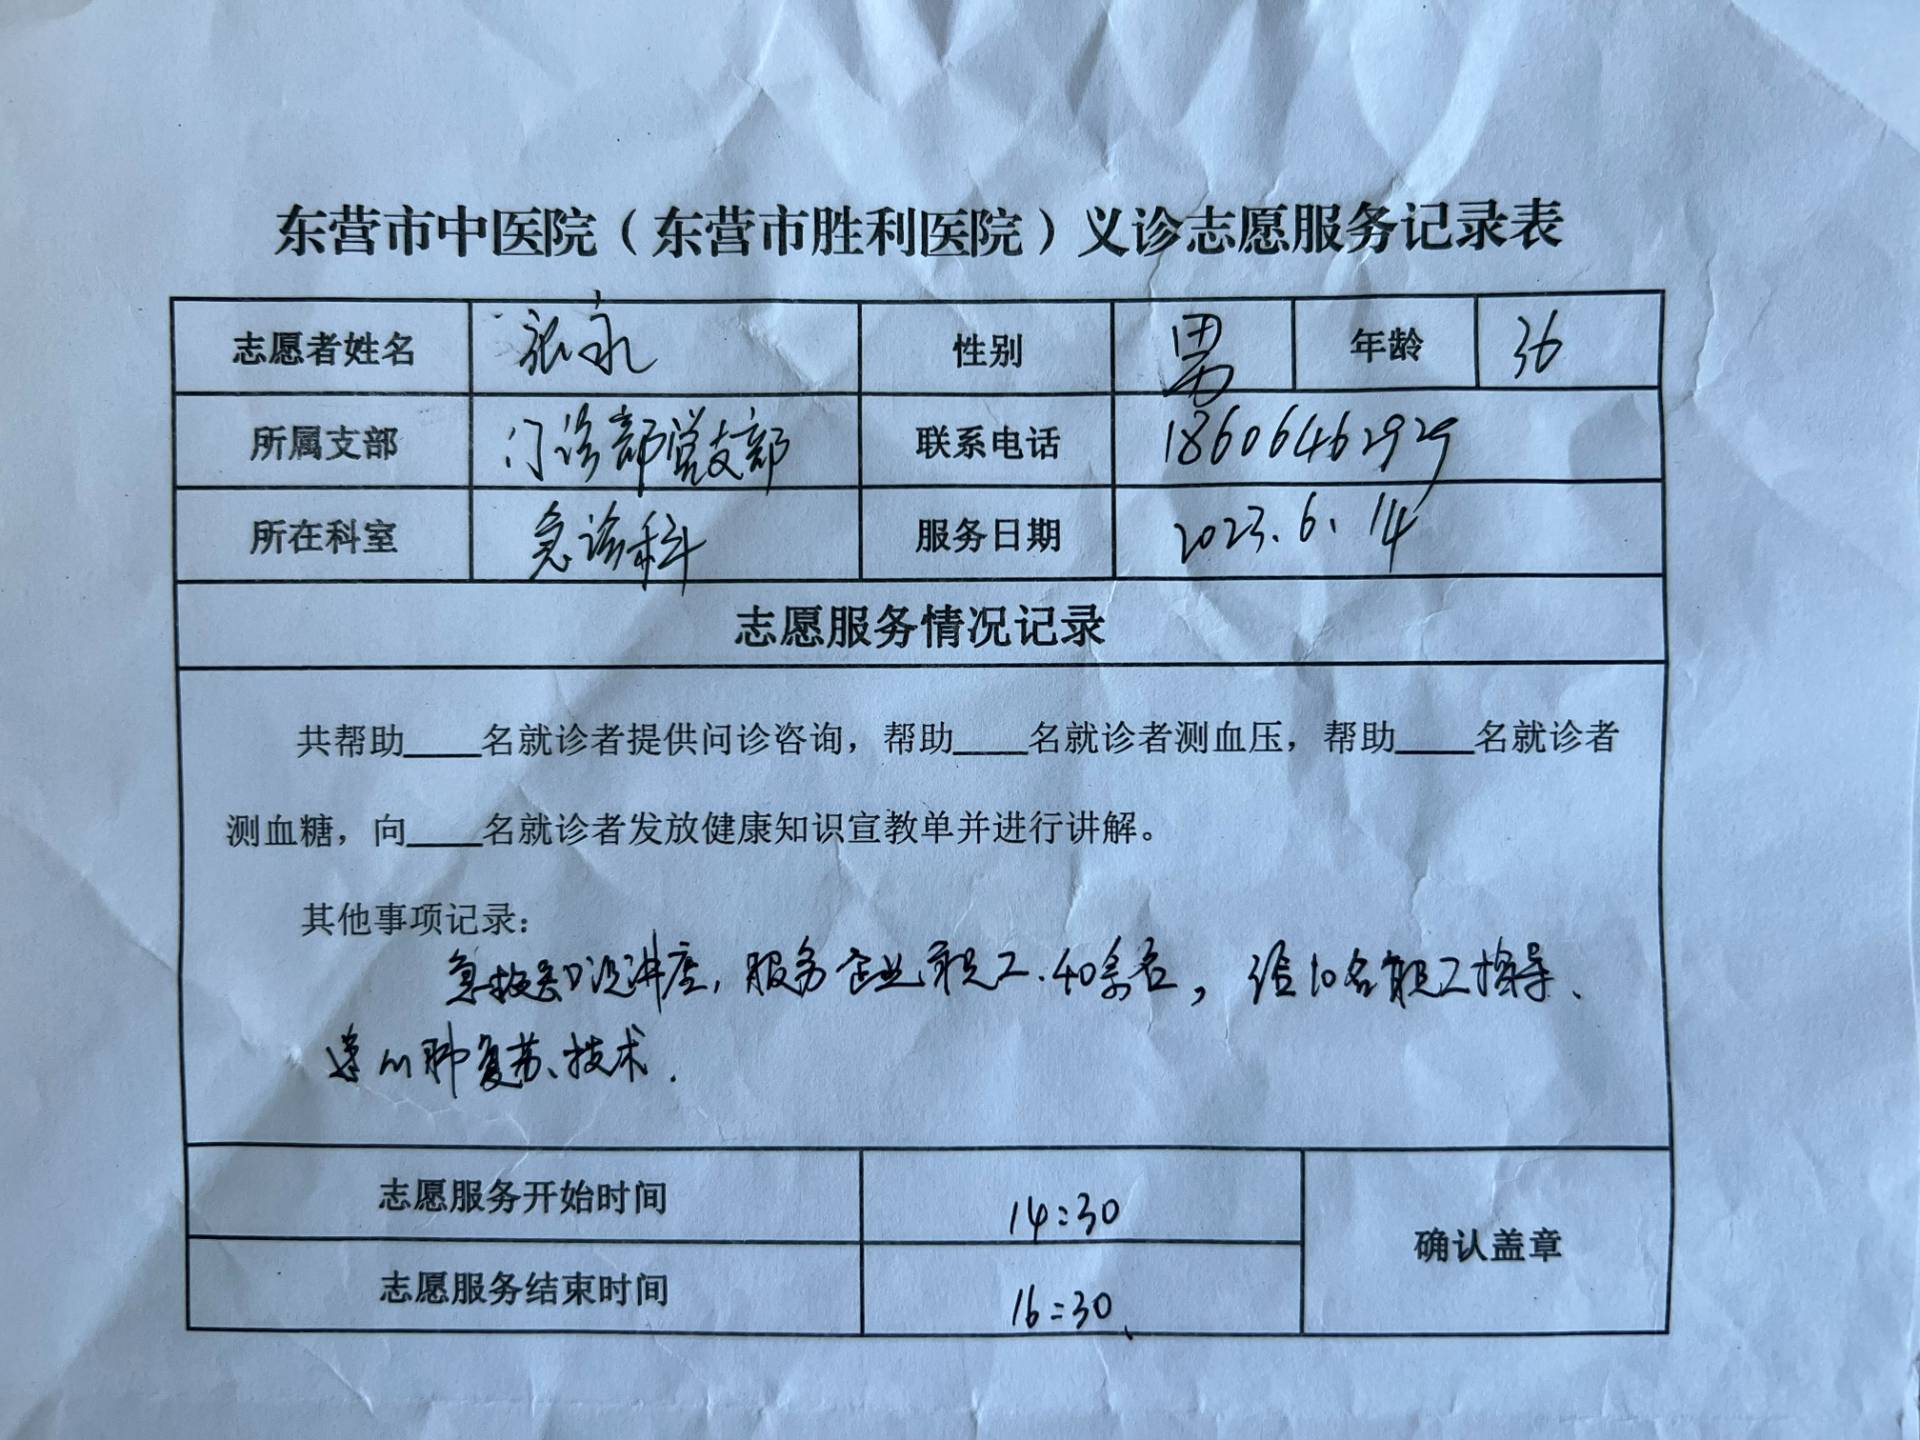 东营市中医院（东营市胜利医院）义诊志愿服务记录表
志愿者姓名 张永 性别 男 年龄 36
所属支部 门诊部党支部 联系电话 18606462929
所在科室 急诊科 服务日期 2023.6.14
志愿服务情况记录
共帮助____名就诊者提供问诊咨询，帮助____名就诊者测血压，帮助____名就诊者
测血糖，向____名就诊者发放健康知识宣教单并进行讲解。
其他事项记录：
急救知识讲座，服务企业职工.40余名，给10名职工指导、
心肺复苏、技术.
志愿服务开始时间 14:30
确认盖章
志愿服务结束时间 16:30